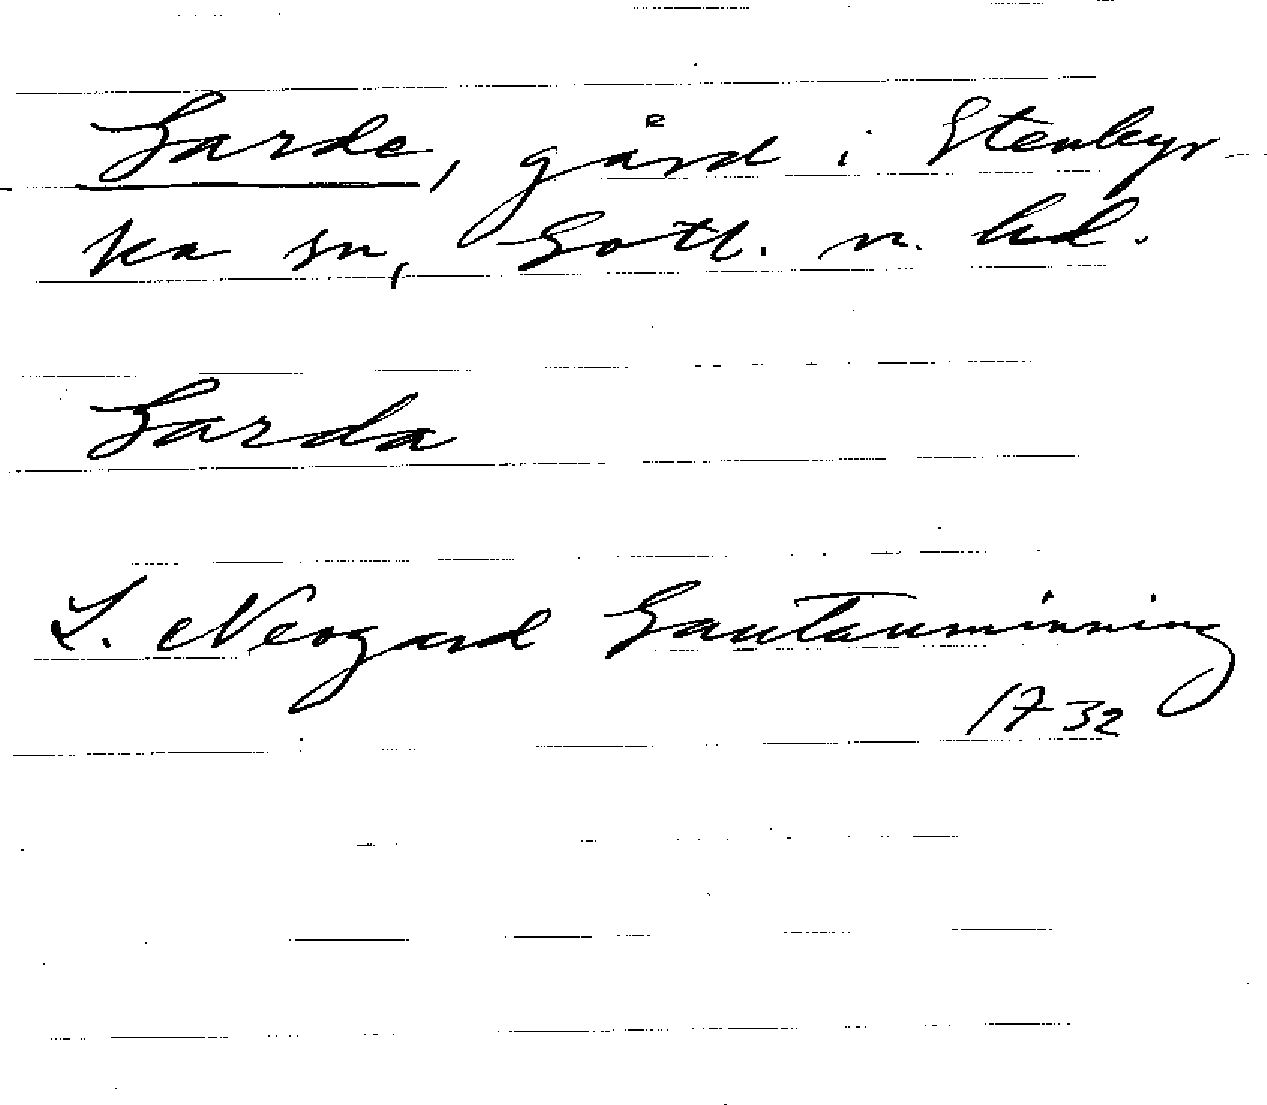 Garde, gård i Stenkyr-
ka sn, Gotl. n. hd.
Garda
L. Neogard Gautauminning
1732